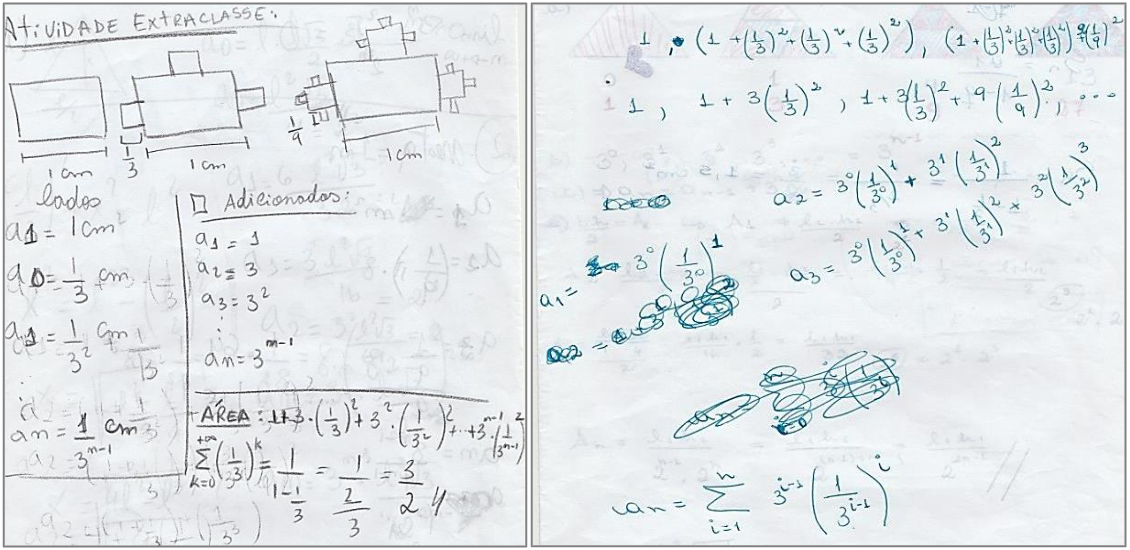 Atividade Extraclasse:
1/3
1 cm
1/3
1 cm
1/9
1 cm
lados
a1 = 1 cm²
a0 = 1/3 cm
a1 = 1/3² cm
⋮
an = 1/3^(n-1) cm
□ Adicionados:
a1 = 1
a2 = 3
a3 = 3²
⋮
an = 3^(n-1)
ÁREA: 1+3·(1/3)² + 3²·(1/3²)² + ... + 3^(n-1)·(1/3^(n-1))²
∑_(k=0)^(+∞) (1/3)^k = 1/(1-1/3) = 1/(2/3) = 3/2 //
1, (1+(1/3)²+(1/3)²+(1/3)²), (1+(1/3)²+(1/3)²+(1/3)²)+9(1/9)²
1, 1+3(1/3)², 1+3(1/3)²+9(1/9)², ...
a2 = 3⁰(1/3⁰)¹ + 3¹(1/3¹)²
a1 = 3⁰(1/3⁰)¹
a3 = 3⁰(1/3⁰)¹ + 3¹(1/3¹)² + 3²(1/3²)³
an = ∑_(i=1)^n 3^(i-1) (1/3^(i-1))^i